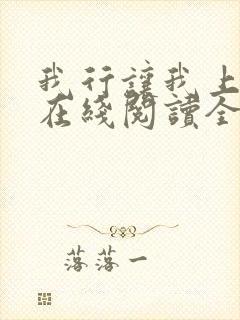 我行讓我上
在綫閱讀全
落落一